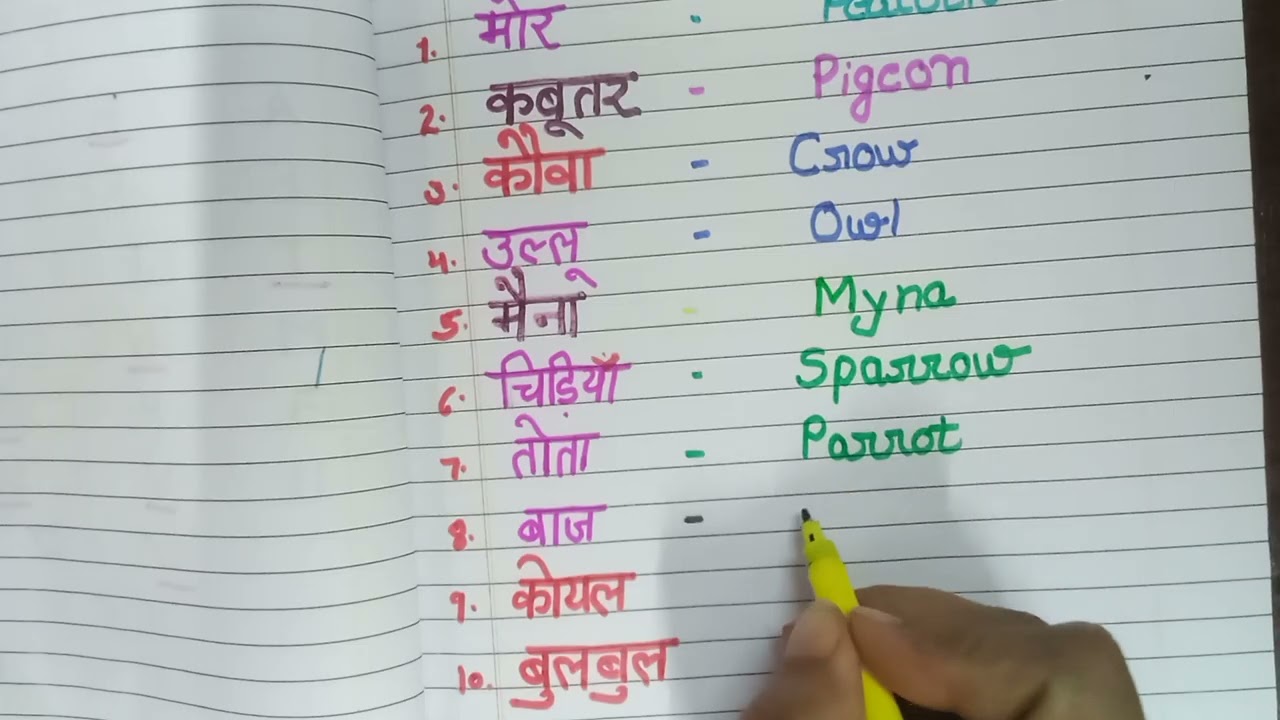 1. मोर - Peacock
2. कबूतर - Pigeon
3. कौवा - Crow
4. उल्लू - Owl
5. मैना - Myna
6. चिड़ियाँ - Sparrow
7. तोता - Parrot
8. बाज -
9. कोयल
10. बुलबुल